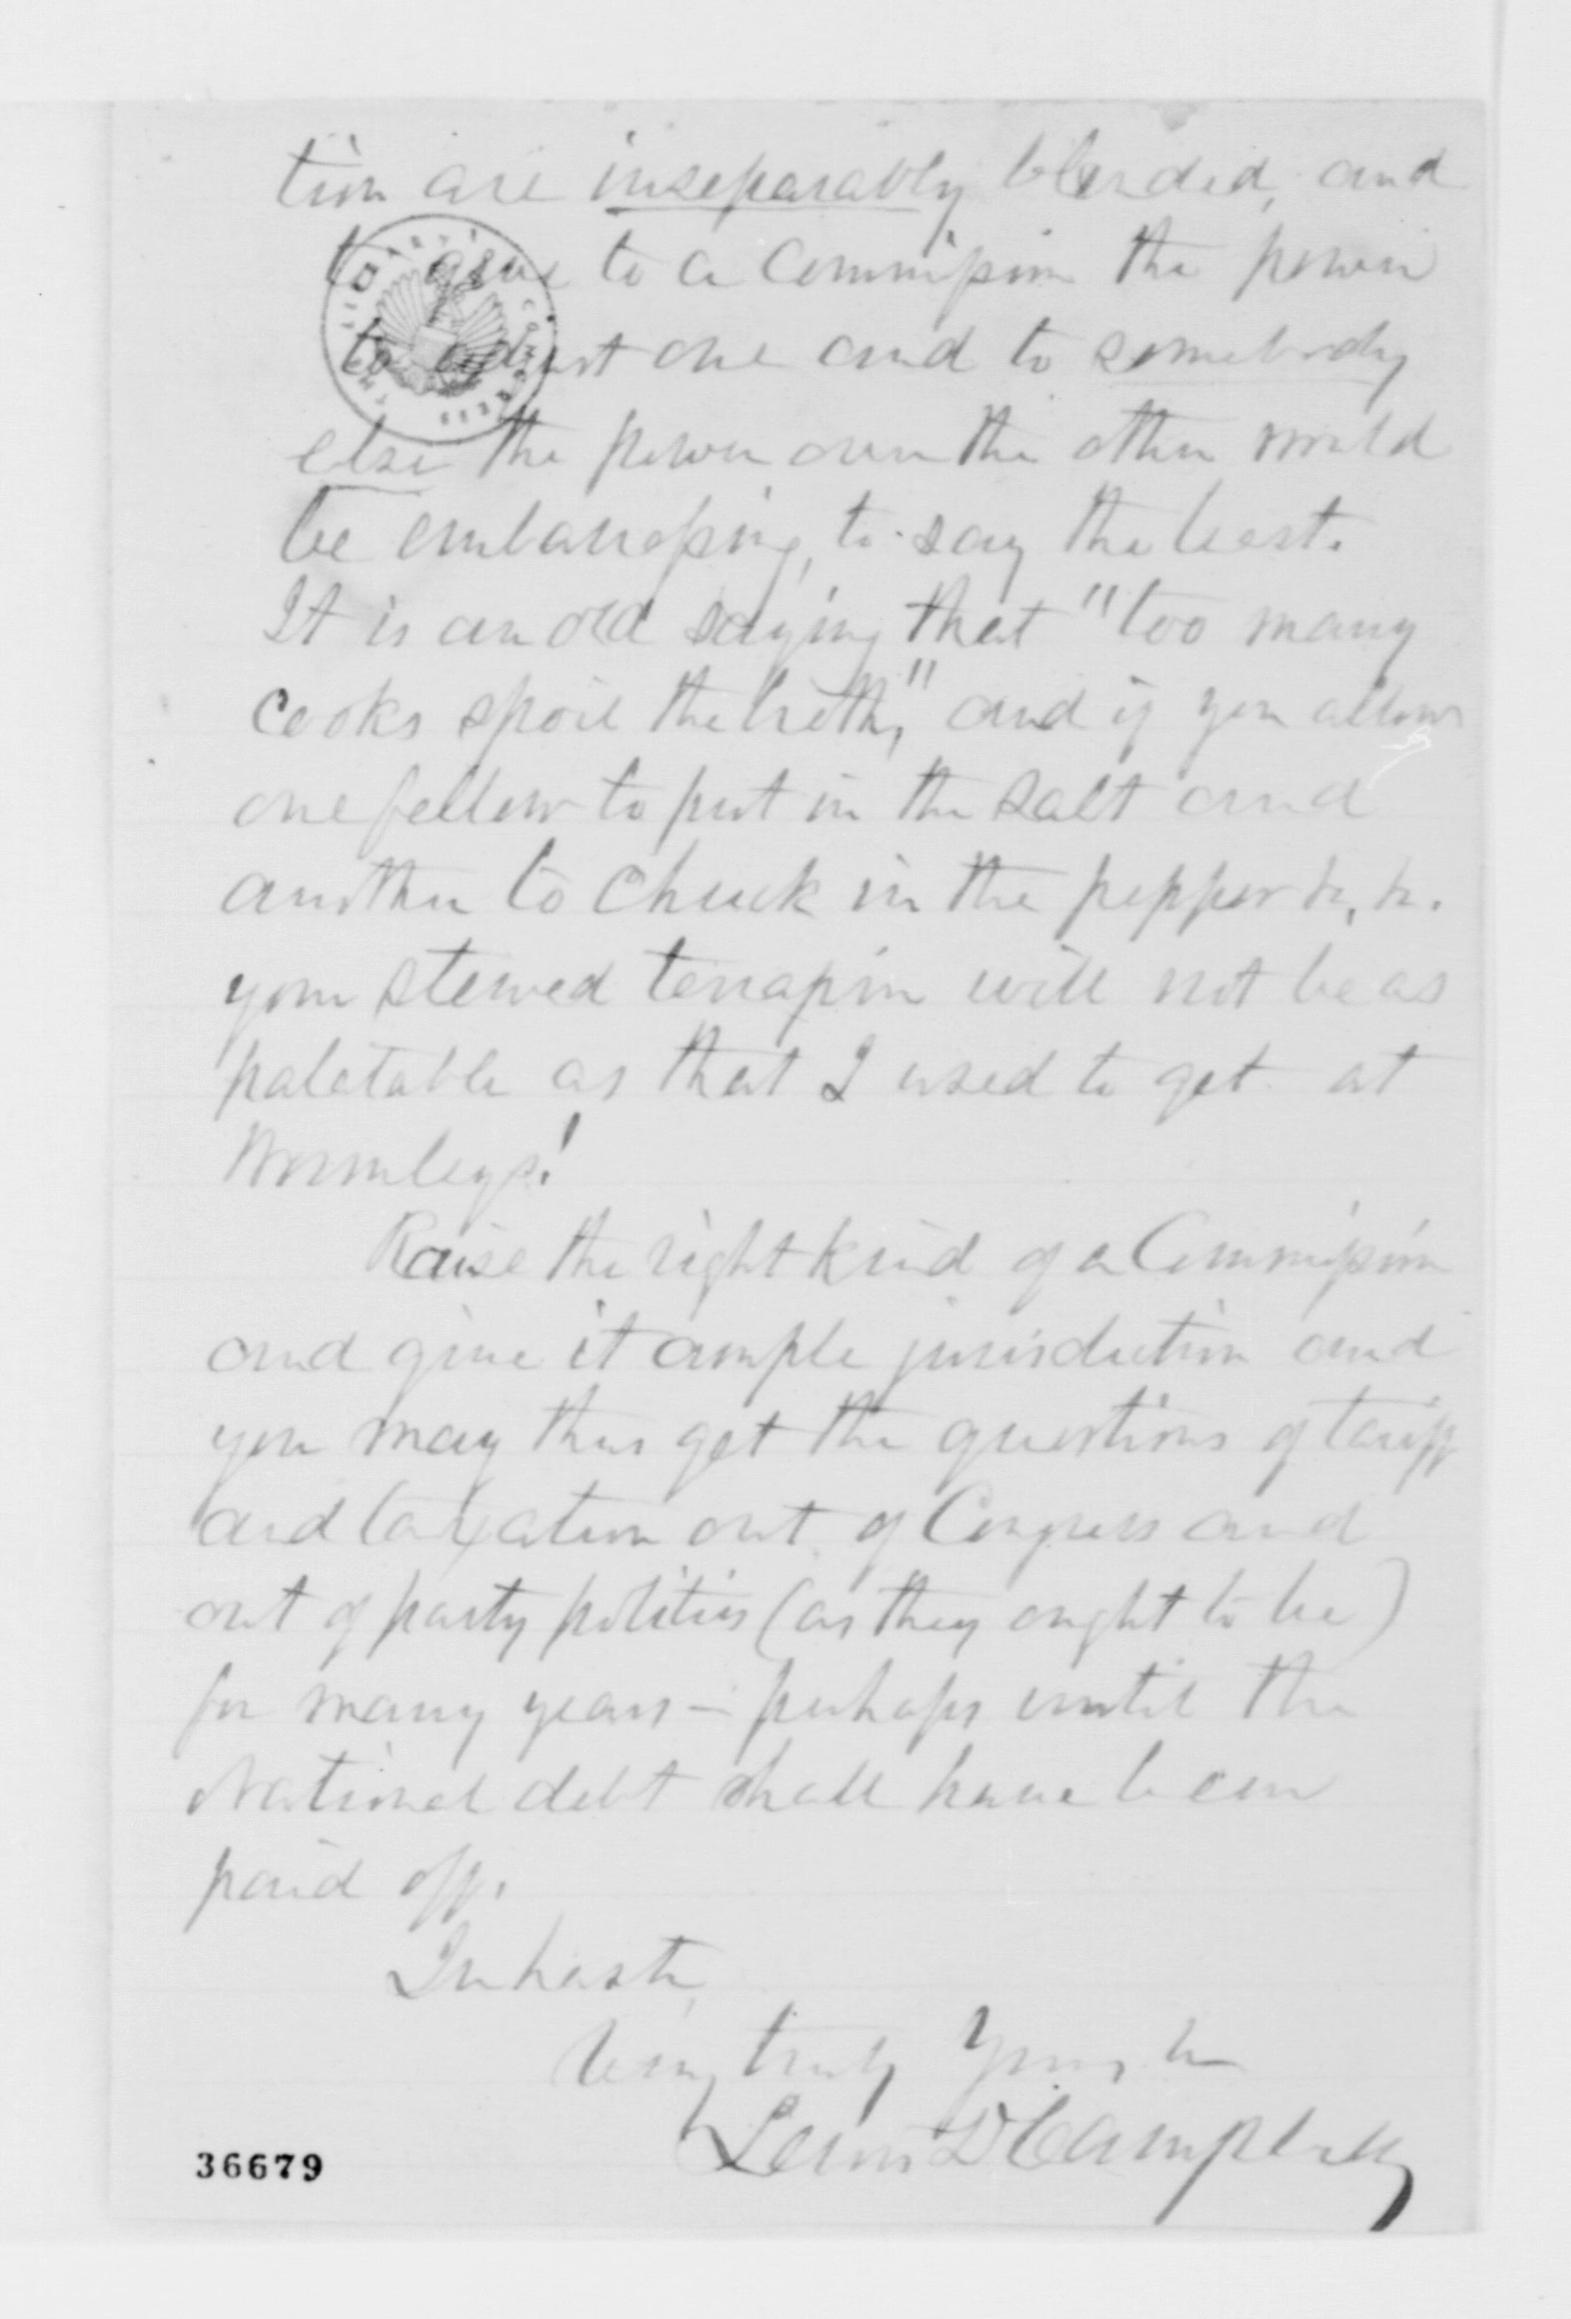 tion are inseparably blended, and
to give to a Commission the power
to adjust one and to somebody
else the power over the other would
be embarrassing, to say the least.
It is an old saying that "too many
cooks spoil the broth," and if you allow
one fellow to put in the salt and
another to chuck in the pepper &c, &c.
your stewed terrapin will not be as
palatable as that I used to get at
Wormleys!
Raise the right kind of a Commission
and give it ample jurisdiction and
you may thus get the questions of tariff
and taxation out of Congress and
out of party politics (as they ought to be)
for many years – perhaps until the
National debt shall have been
paid off.
In haste,
Very truly Yours &c
Lewis D Campbell
LIBRARY OF CONGRESS
36679